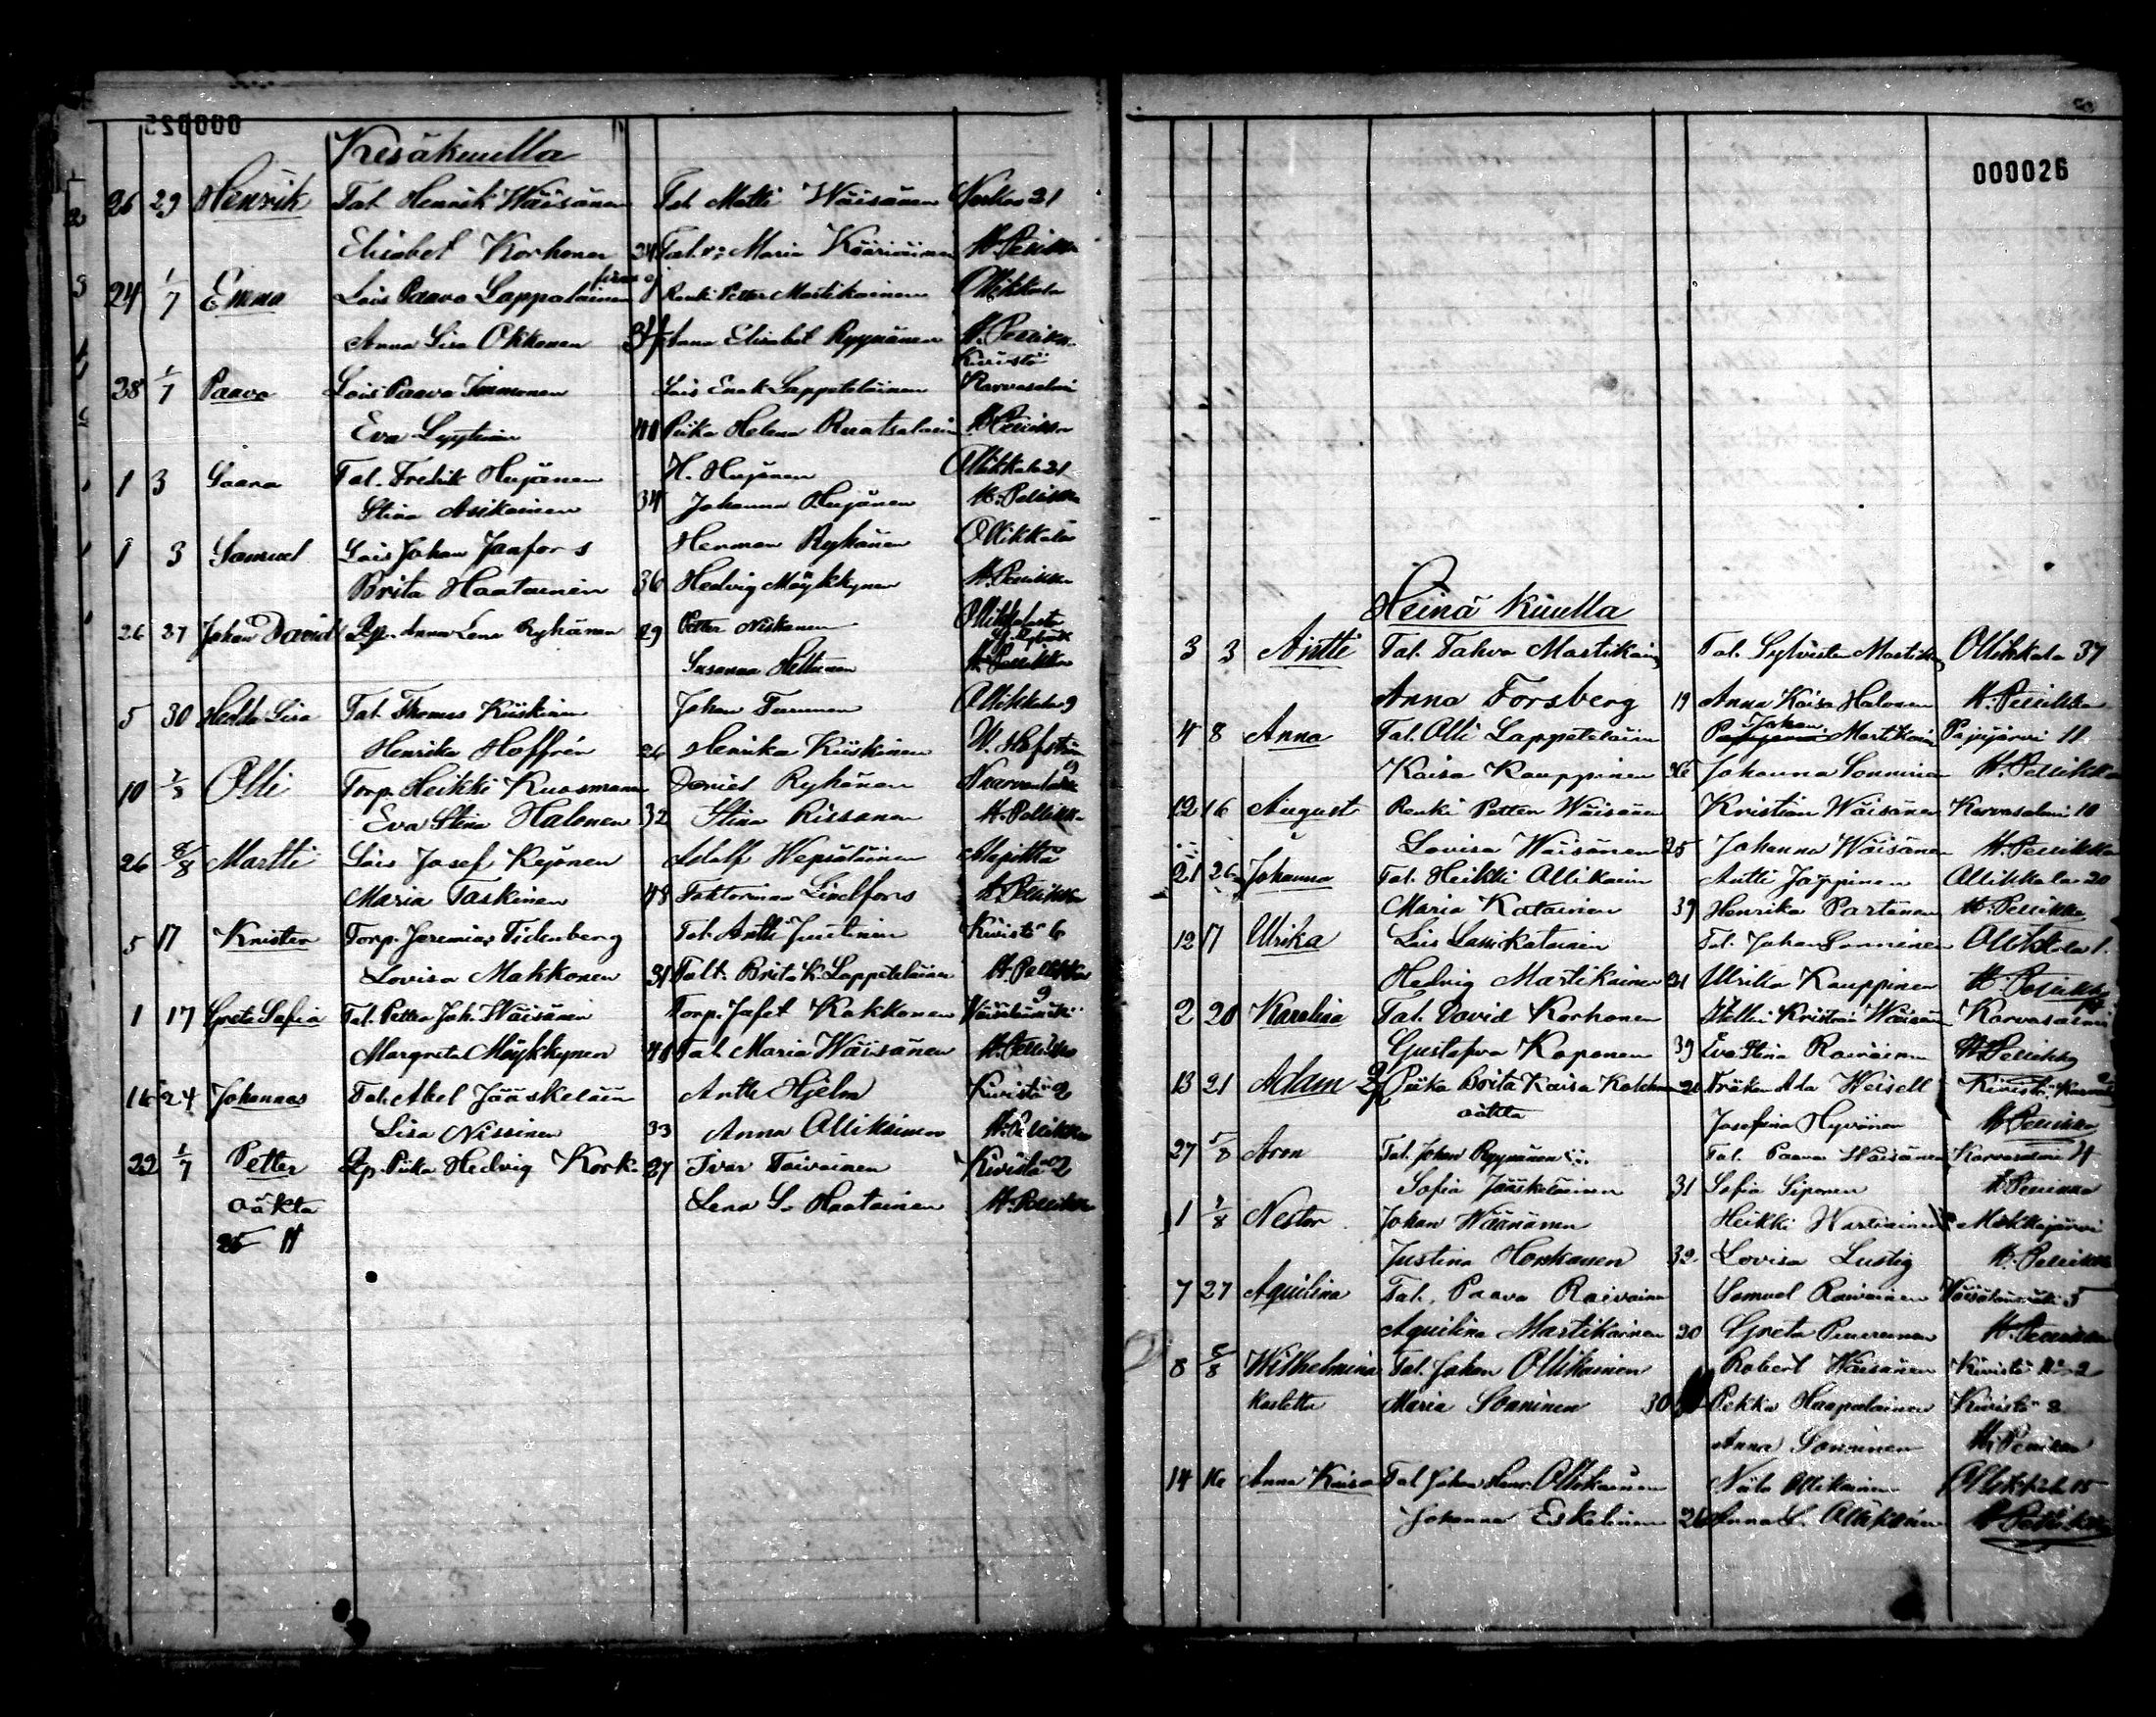 000025
Kesäkuulla
26 29 Henrik Tal. Henrik Wäisänen Tal. Matti Wäisänen 21
Elisabet Korhonen 34 Tal. v: Maria Kääriäinen H. Pellikka
24 1/7 Emma Lois Paavo Lappalainen Renki Petter Martikainen Ollikkala
Anna Lisa Okkonen 34 Anna Elisabet Ryynänen H. Pellikka
Kivistö
28 1/7 Paavo Lois Paavo Immonen Lois Enok Lappeteläinen Karvasalmi
Eva Lyytinen 40 Piika Helena Ruatsalainen H. Pellikka
1 3 Saara Tal. Fredrik Hujanen H. Hujanen Ollikkala 21
Stina Asikainen 34 Johanna Hujanen H. Pellikka
1 3 Samuel Lois Johan Janfors Herman Ryhänen Ollikkala
Brita Haatainen 36 Hedvig Möykkynen H. Pellikka
26 27 Johan David Lp. Anna Lena Ryhänen 29 Petter Niskanen
Susanna Hettunen H. Pellikka
5 30 Hedda Lisa Tal. Thomas Kiiskinen Johan Turunen Ollikkala 9
Henrika Hoffrén 26 Henrika Kiiskinen W. Hofström
10 Olli Torp. Heikki Kuosmanen Daniel Ryhänen
Eva Stina Halonen 32 Stina Rissanen H. Pellikka
26 8/8 Martti Lois Josef Rejonen Adolf Wepsäläinen Alapitkä
Maria Taskinen 48 Faktorinna Lindfors H. Pellikka
5 17 Krister Torp. Jeremias Tidenberg Tal. Antti Juutinen Kivistö 6
Lovisa Makkonen 31 Talt. Brita K. Lappeteläinen H. Pellikka
1 17 Greta Sofia Tal. Petter Joh. Wäisänen Torp. Jafet Kakkonen Väisälänmäki 9
Margreta Möykkynen 40 Tal. Maria Wäisänen H. Pellikka
16 24 Johannes Tal. Akel Jääskeläin Antti Hjelm Kivistö 2
Lisa Nissinen 33 Anna Ollikainen H. Pellikka
22 1/7 Petter Lp. Piika Hedvig Kork. 27 Ivar Toivainen Kivistö 2
oäkta Lena S. Haatainen H. Pellikka
000026
Heinä kuulla
3 3 Antti Tal. Tahvo Martikain Tal. Sylvester Martik Ollikkala 37
Anna Forsberg 19 Anna Kaisa Halonen H. Pellikka
4 8 Anna Tal. Olli Lappeteläin Johan Martikain Pajujärvi 11
Kaisa Kauppinen 26 Johanna Sonninen H. Pellikka
12 16 August Renki Petter Wäisänen Kristian Wäisänen Karvasalmi 10
Lovisa Wäisänen 25 Johanna Wäisänen H. Pellikka
21 26 Johanna Tal. Heikki Ollikain Antti Jäppinen Ollikkala 20
Maria Katainen 39 Henrika Partanen H. Pellikka
12 17 Ulrika Lois Lassi Katainen Tal. Johan Sonninen Ollikkala 1.
Hedvig Martikainen 21 Ulrikka Kauppinen H. Pellikka
2 20 Karolina Tal. David Korhonen Kristian Wäisänen Karvasalmi
Gustafva Koponen 39 Eva Stina H. Pellikka
13 21 Adam Piika Brita Kaisa Kakkonen 21 Fröken Ada Weisell Kivistö
oäkta Josefina Hyvönen H. Pellikka
27 5/8 Aron Tal. Johan Ryynänen Tal. Paavo Wäisänen Karvasalmi 4
Sofia Jääskeläinen 31 Sofia Siponen H. Pellikka
1 Nestor Johan Wäänänen Heikki Wartiainen
Justina Honkanen 32 Lovisa Lustig H. Pellikka
7 27 Aquilina Tal. Paavo Raivainen Samuel Raivainen Väisälänmäki 5
Aquilina Martikainen 20 Greta H. Pellikka
8 8/8 Wilhelmina Tal. Johan Ollikainen Robert Wäisänen Kivistö No 2
Maria Sonninen 30 Pekka Haapalainen Kivistö 2
Anna Sonninen H. Pellikka
14 16 Anna Kaisa Tal Johan Henr. Ollikainen Niilo Ollikainen Ollikkala 15
Johanna Eskelinen 26 Anna L. Ollikainen H. Pellikka